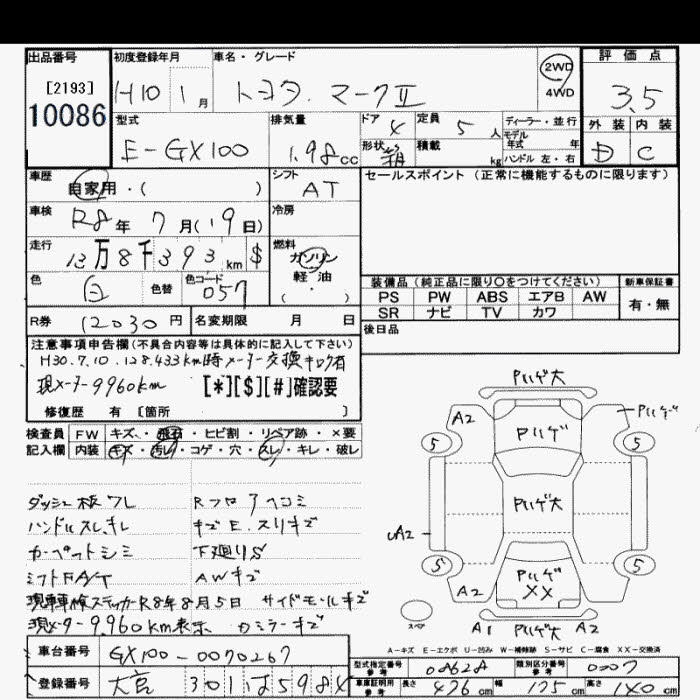 出品番号 初度登録年月 車名・グレード 評価点
[2193] H10 1月 トヨタ.マークⅡ 2WD 3.5
10086 4WD
型式 排気量 ドア 定員 ディーラー・並行 外装 内装
E-GX100 1.98cc 4 5人 モデル年式 年 D C
形状 箱 積載 kg ハンドル 左・右
車歴 シフト セールスポイント(正常に機能するものに限ります)
自家用・( ) AT
車検 冷房
R8年7月(19日)
走行 燃料
13万8千393km $ ガソリン
色 色替 色コード 軽油
白 057 ・( )
装備品(純正品に限り○をつけてください) 新車保証書
PS PW ABS エアB AW 有・無
SR ナビ TV カワ
R券 12030円 名変期限 月 日 後日品
注意事項申告欄(不具合内容等は具体的に記入して下さい)
H30.7.10.128.433km時メーター交換キロク有
現メーター9960km [*][$][#]確認要
修復歴 有 [箇所 ]
検査員 FW キズ・飛石・ヒビ割・リペア跡・×要
記入欄 内装 キズ・汚レ・コゲ・穴・スレ・キレ・破レ
ダッシュ板ワレ Rフロアヘコミ
ハンドルスレ、キレ キズE.スリキズ
カーペットシミ 下廻りS
シフトFA/T AWキズ
現車車検ステッカーR8年8月5日 サイドモールキズ
現メーター9,960km表示 カミラーキズ
Pハゲ大
A2 Pハゲ Pハゲ
5 5
Pハゲ大
A2
5 Pハゲ 5
A2 XX A2
スペア A1 Pハゲ大 A2
A-キズ E-エクボ U-凹み W-補修跡 S-サビ C-腐食 XX-交換済
車台番号 GX100-0070267
登録番号 大宮 301 ほ 5984
型式指定番号 参考 08628 類別区分番号 参考 0007
車庫証明用 参考 長さ 476cm 幅 175cm 高さ 140cm